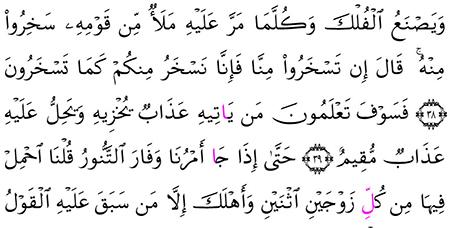 وَيَصْنَعُ ٱلْفُلْكَ وَكُلَّمَا مَرَّ عَلَيْهِ مَلَأٌ مِّن قَوْمِهِۦ سَخِرُواْ
مِنْهُ ۚ قَالَ إِن تَسْخَرُواْ مِنَّا فَإِنَّا نَسْخَرُ مِنكُمْ كَمَا تَسْخَرُونَ
﴿٣٨﴾ فَسَوْفَ تَعْلَمُونَ مَن يَاتِيهِ عَذَابٌ يُخْزِيهِ وَيَحِلُّ عَلَيْهِ
عَذَابٌ مُّقِيمٌ ﴿٣٩﴾ حَتَّىٰ إِذَا جَا أَمْرُنَا وَفَارَ ٱلتَّنُّورُ قُلْنَا ٱحْمِلْ
فِيهَا مِن كُلِّ زَوْجَيْنِ ٱثْنَيْنِ وَأَهْلَكَ إِلَّا مَن سَبَقَ عَلَيْهِ ٱلْقَوْلُ